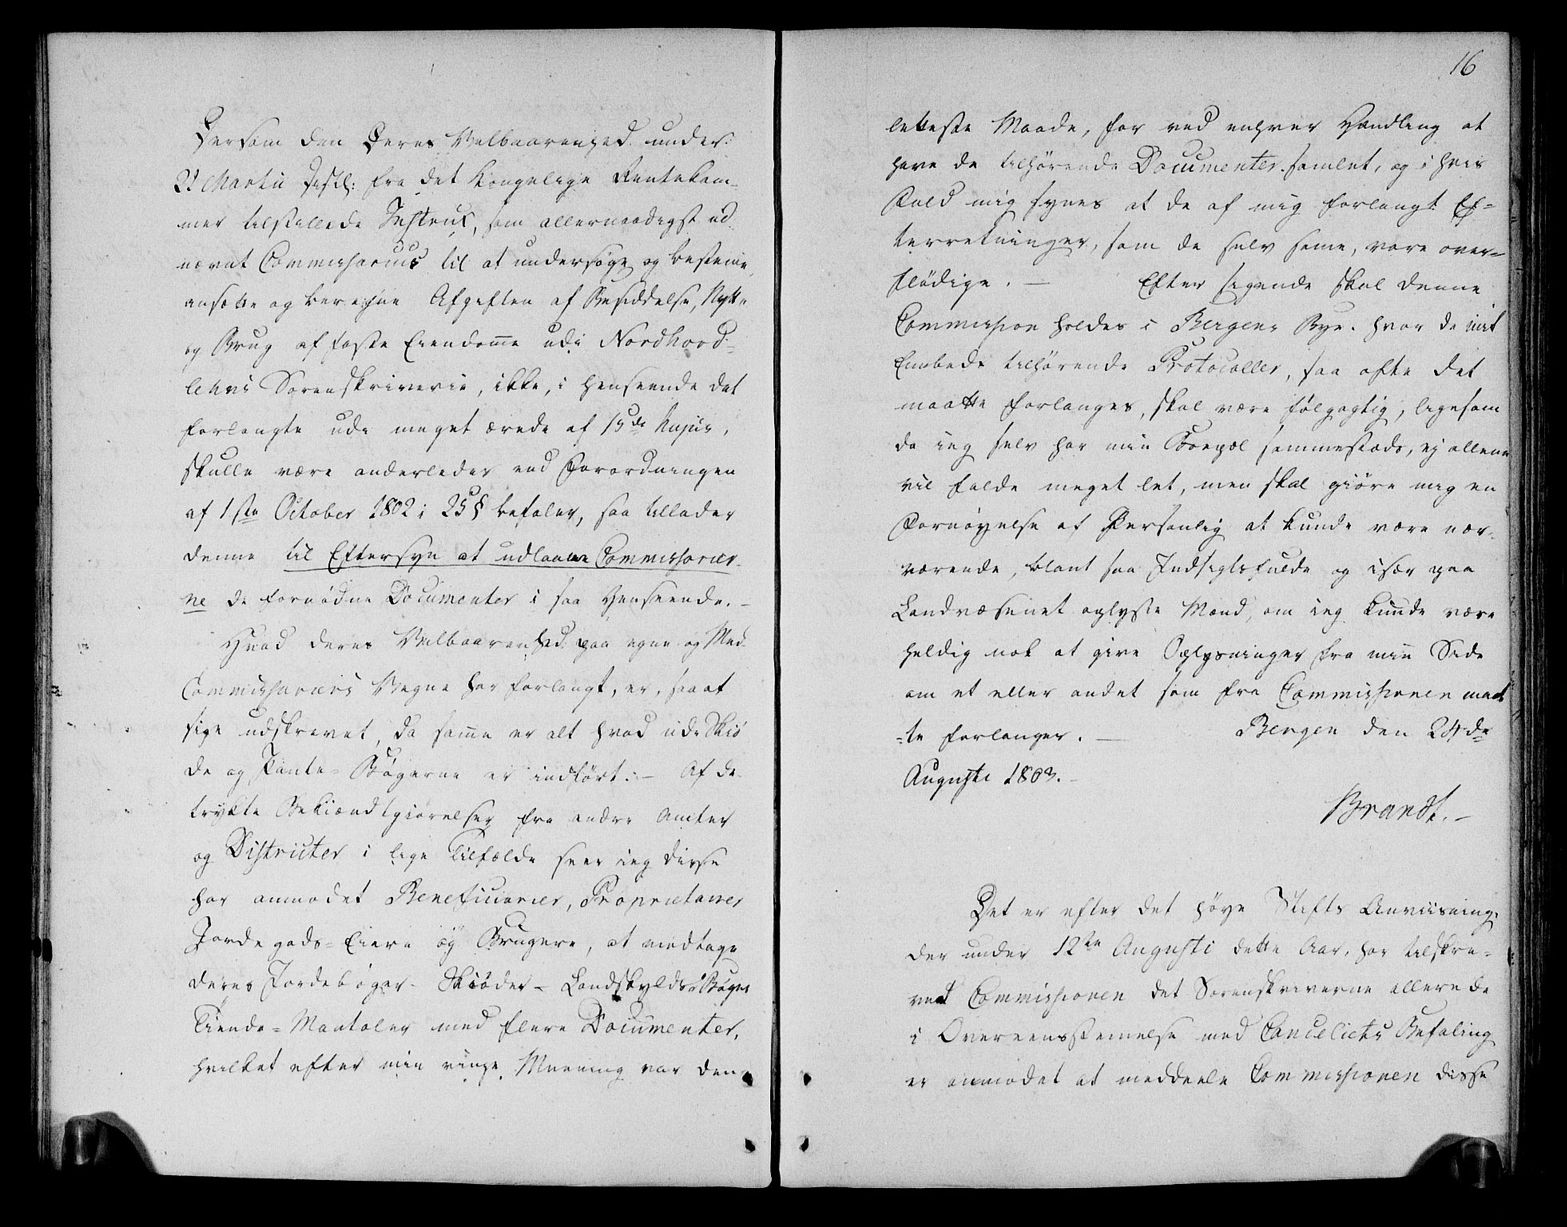 Dersom den Deres Velbaarenhed under
22 Martii sistl: fra det Kongelige Rentekam-
mer tilstillede Instrux, som allernaadigst ud
nævnt Commissarius til at undersøge og bestemme,
ansætte og beregne Afgiften af Besiddelse, Nytte
og Brug af faste Eiendomme udi Nordhord-
lehns Sorenskriverie, ikke, i Henseende det
forlangte udi meget ærede af 15de hujus,
skulle være anderledes end Forordningen
af 1ste October 1802 i 25 § befaler, saa tillader
denne til Eftersyn at udlaane Commissarier-
ne de fornødne Documenter i saa Henseende. -
Hvad deres Velbaarenhed paa egne og Med
Commissariers Vegne har forlangt, er, saa at
sige udskrevet, da samme er alt hvad udi Skiø
de og Pante-Bøgerne er indført. - Af de
trykte Bekiændtgiørelser fra andre Amter
og Districter i lige Tilfælde seer ieg disse
har anmodet Beneficiarier, Proprietairer
Jordegods-Eiere og Brugere, at medtage
deres Jordebøger - Skiøder - Landskylds Bøger
Tiende-Mantaler med flere Documenter,
hvilket efter min ringe Meening var den
16
letteste Maade, for ved enhver Handling at
have de tilhørende Documenter samlet, og i hvis
Fald mig synes at de af mig forlangt Ef-
terretninger, som de selv same, vare over-
flødige. - Efter sigende skal denne
Commission holdes i Bergens Bye, hvor de mit
Embede tilhørende Protocoller, saa ofte det
maatte forlanges, skal være følgagtig, ligesom
da ieg selv har min Boepæl sammesteds, ej allene
vil falde meget let, men skal giøre mig en
Fornøyelse af Personlig at kunde være nær-
værende, blant saa Indsigtsfulde og især paa
Landvæsenet oplyste Mænd, om ieg kunde være
heldig nok at give Oplysninger fra min Side
om et eller andet som fra Commissionen maat
-te forlanges. - Bergen den 24de
Augusti 1803. -
Brandt. -
Det er efter det høye Stifts Anviisning,
der under 12te Augusti dette Aar, har tilskre-
vet Commissionen det Sorenskriverne allerede
i Overeensstemmelse med Cancelliets Befaling
er anmodet at meddeele Commissionen disse